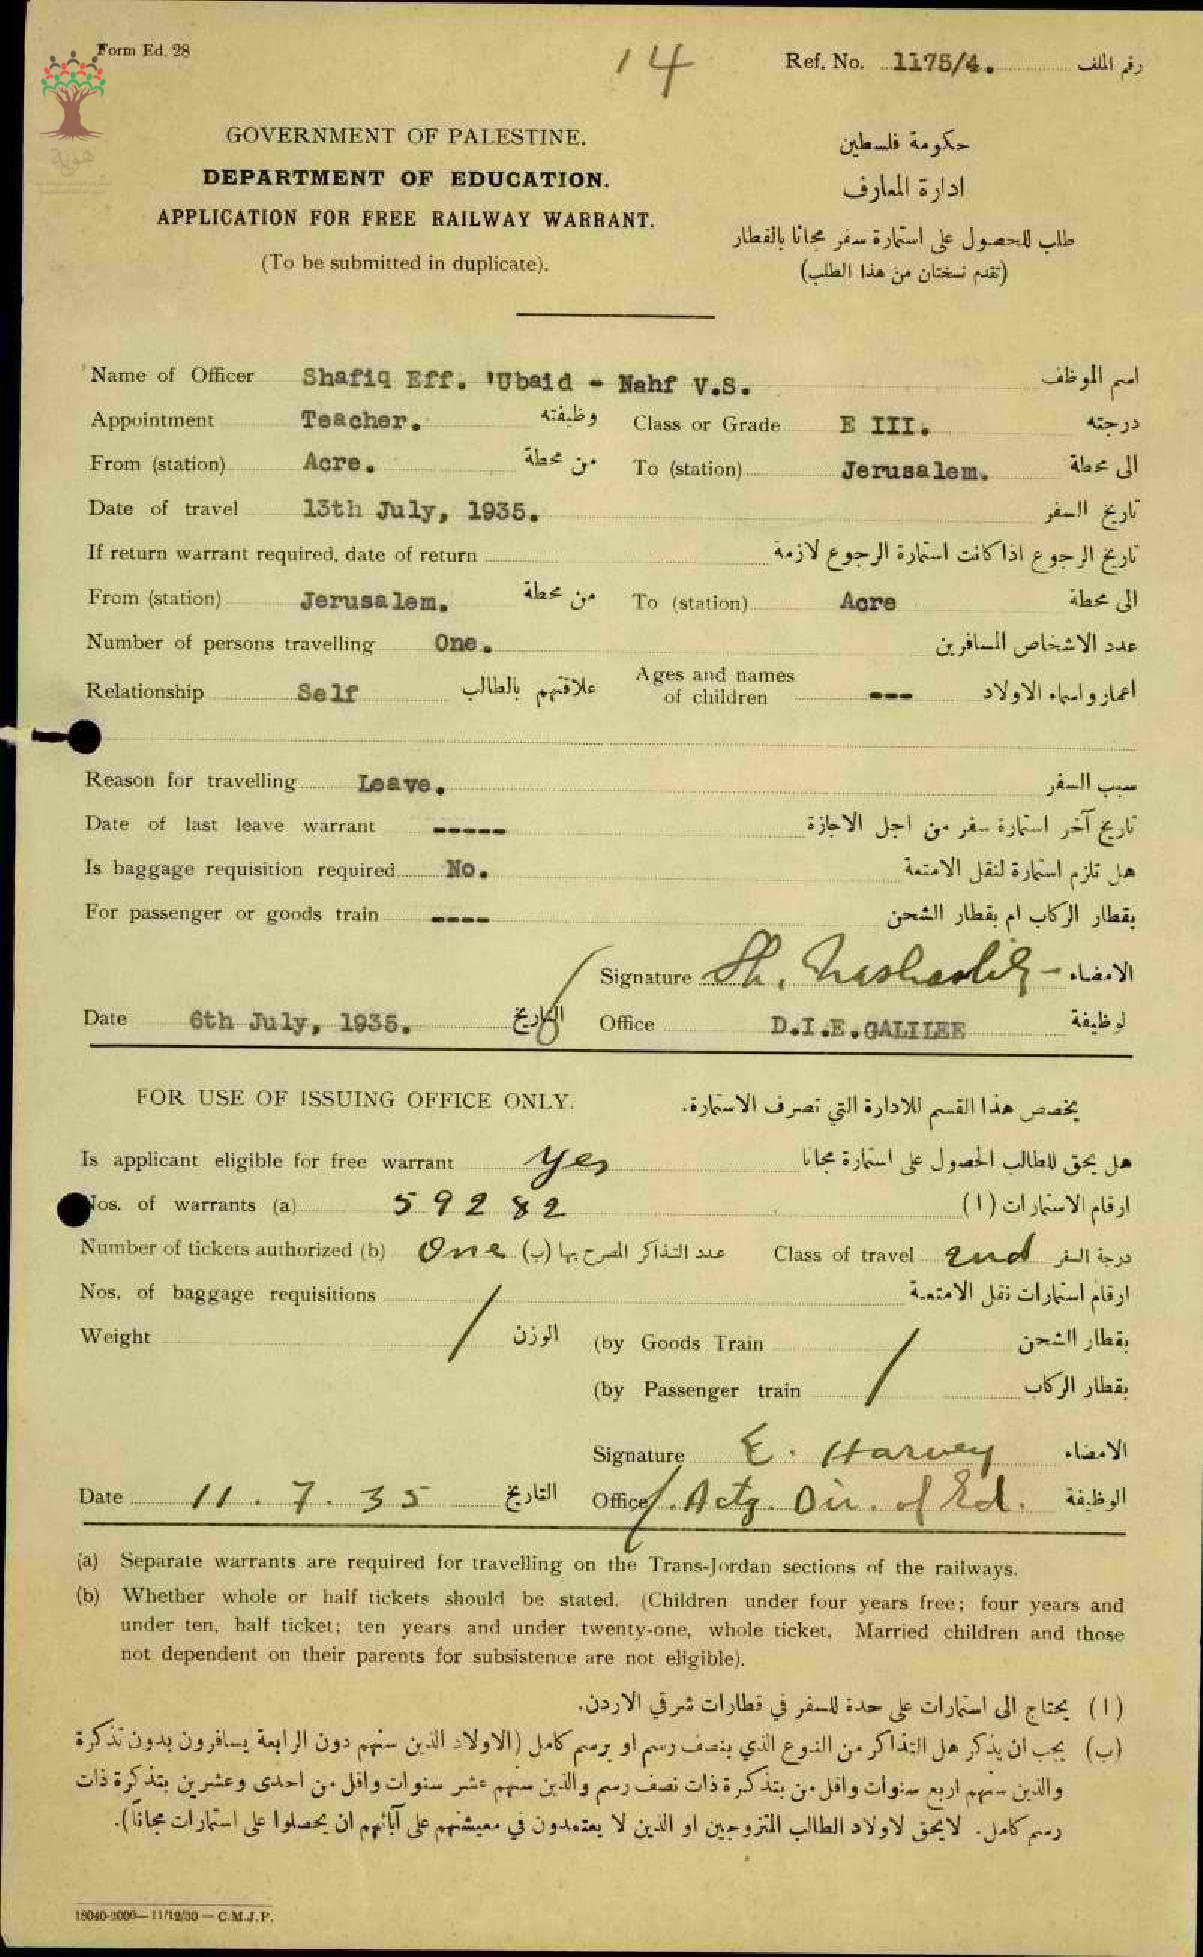 Form Ed. 28
14
Ref. No. 1175/4. رقم الملف
هوية
GOVERNMENT OF PALESTINE.
حكومة فلسطين
DEPARTMENT OF EDUCATION.
ادارة المعارف
APPLICATION FOR FREE RAILWAY WARRANT.
طلب للحصول على استمارة سفر مجانا بالقطار
(To be submitted in duplicate).
(تقدم نسختان من هذا الطلب)
Name of Officer Shafiq Eff. 'Ubaid - Nahf V.S. اسم الموظف
Appointment Teacher. وظيفته Class or Grade E III. درجته
From (station) Acre. من محطة To (station) Jerusalem. الى محطة
Date of travel 13th July, 1935. تاريخ السفر
If return warrant required, date of return تاريخ الرجوع اذا كانت استمارة الرجوع لازمة
From (station) Jerusalem. من محطة To (station) Acre الى محطة
Number of persons travelling One. عدد الاشخاص المسافرين
Relationship Self علاقتهم بالطالب Ages and names of children --- اعمار واسماء الاولاد
Reason for travelling Leave. سبب السفر
Date of last leave warrant ----- تاريخ آخر استمارة سفر من اجل الاجازة
Is baggage requisition required No. هل تلزم استمارة لنقل الامتعة
For passenger or goods train ---- بقطار الركاب ام بقطار الشحن
Signature Sh. Nashashibi الامضاء
Date 6th July, 1935. التاريخ Office D.I.E.GALILEE لوظيفة
FOR USE OF ISSUING OFFICE ONLY. يخصص هذا القسم للادارة التي تصرف الاستمارة.
Is applicant eligible for free warrant yes هل يحق للطالب الحصول على استمارة مجانا
Nos. of warrants (a) 59282 ارقام الاستمارات (ا)
Number of tickets authorized (b) One عدد التذاكر المصرح بها (ب) Class of travel 2nd درجة السفر
Nos. of baggage requisitions / ارقام استمارات نقل الامتعة
Weight الوزن (by Goods Train / بقطار الشحن
(by Passenger train بقطار الركاب
Signature E. Harvey الامضاء
Date 11.7.35 التاريخ Office /. Actg. Dir. of Ed. الوظيفة
(a) Separate warrants are required for travelling on the Trans-Jordan sections of the railways.
(b) Whether whole or half tickets should be stated. (Children under four years free; four years and
under ten, half ticket; ten years and under twenty-one, whole ticket. Married children and those
not dependent on their parents for subsistence are not eligible).
(ا) يحتاج الى استمارات على حدة للسفر في قطارات شرقي الاردن.
(ب) يجب ان يذكر هل التذاكر من النوع الذي بنصف رسم او برسم كامل (الاولاد الذين سنهم دون الرابعة يسافرون بدون تذكرة
والذين سنهم اربع سنوات واقل من بتذكرة ذات نصف رسم والذين سنهم عشر سنوات واقل من احدى وعشرين بتذكرة ذات
رسم كامل. لايحق لاولاد الطالب المتزوجين او الذين لا يعتمدون في معيشتهم على آبائهم ان يحصلوا على استمارات مجانا).
18040-2000—11/12/30—C.M.J.P.